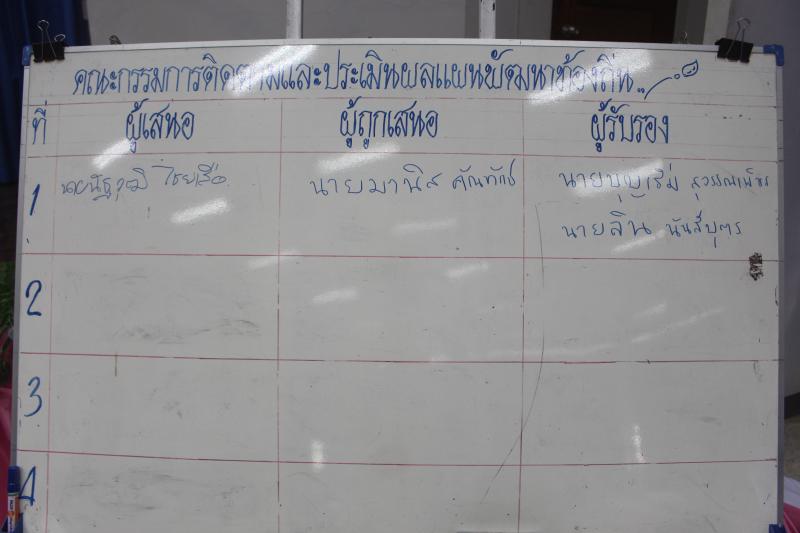 คณะกรรมการติดตามและประเมินผลแผนพัฒนาท้องถิ่น
ที่ ผู้เสนอ ผู้ถูกเสนอ ผู้รับรอง
1 นายณัฐวุฒิ ไชยเสือ นายมานิส นายบุญเริ่ม สุวรรณเพ็ชร
นายลิ้น นันสีบุตร
2
3
4